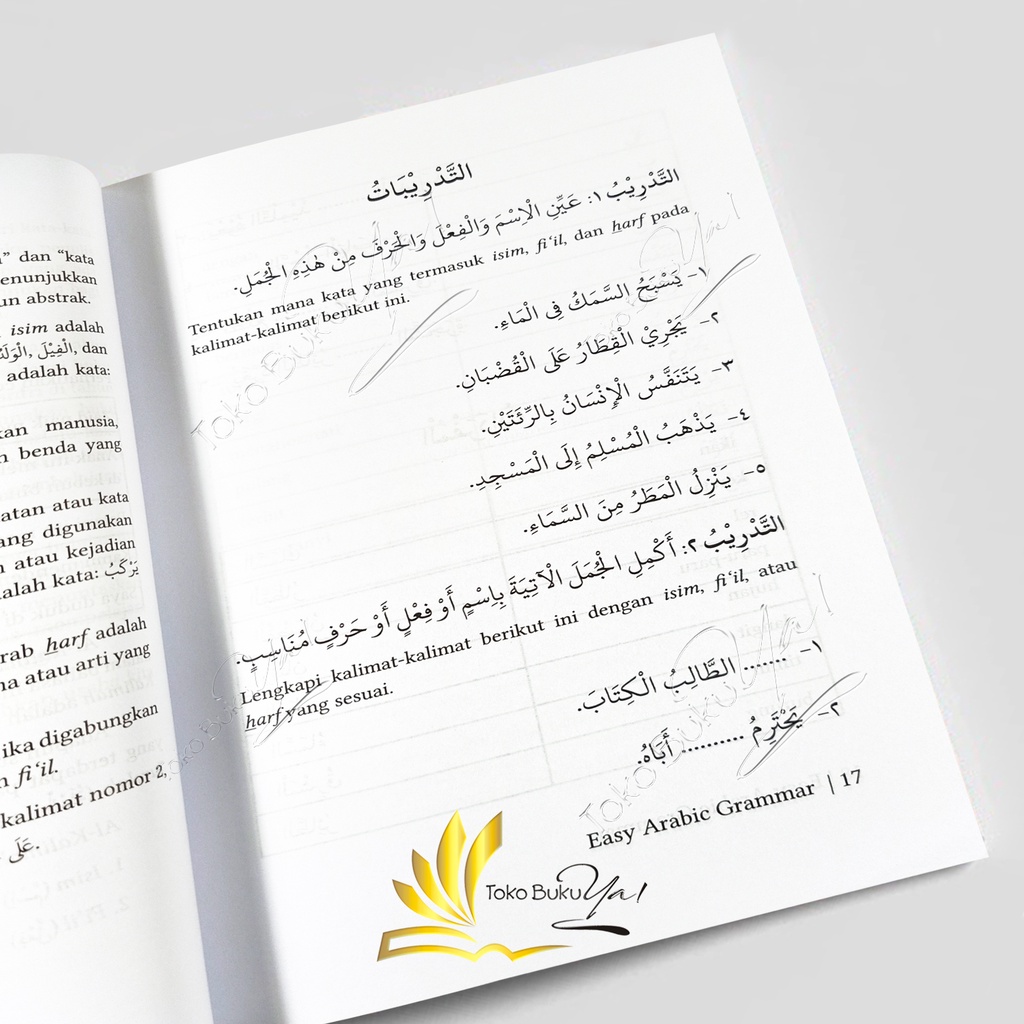 ” dan “kata
enunjukkan
un abstrak.
isim adalah
الْفِيْلَ, dan
adalah kata:
kan manusia,
benda yang
atan atau kata
ang digunakan
n atau kejadian
alah kata: يَرْكَبُ
rab harf adalah
na atau arti yang
ika digabungkan
n fi‘il.
kalimat nomor 2,
عَلَى.
التَّدْرِيْبَاتُ
التَّدْرِيْبُ ١: عَيِّنِ الْاِسْمَ وَالْفِعْلَ وَالْحَرْفَ مِنْ هٰذِهِ الْجُمَلِ.
Tentukan mana kata yang termasuk isim, fi‘il, dan harf pada
kalimat-kalimat berikut ini.
١- يَسْبَحُ السَّمَكُ فِى الْمَاءِ.
٢- يَجْرِيْ الْقِطَارُ عَلَى الْقُضْبَانِ.
٣- يَتَنَفَّسُ الْإِنْسَانُ بِالرِّئَتَيْنِ.
٤- يَذْهَبُ الْمُسْلِمُ إِلَى الْمَسْجِدِ.
٥- يَنْزِلُ الْمَطَرُ مِنَ السَّمَاءِ.
التَّدْرِيْبُ ٢: أَكْمِلِ الْجُمَلَ الْآتِيَةَ بِاِسْمٍ أَوْ فِعْلٍ أَوْ حَرْفٍ مُنَاسِبٍ.
Lengkapi kalimat-kalimat berikut ini dengan isim, fi‘il, atau
harf yang sesuai.
١- ....... الطَّالِبُ الْكِتَابَ.
٢- يَحْتَرِمُ .......... أَبَاهُ.
Easy Arabic Grammar | 17
Toko Buku Ya!